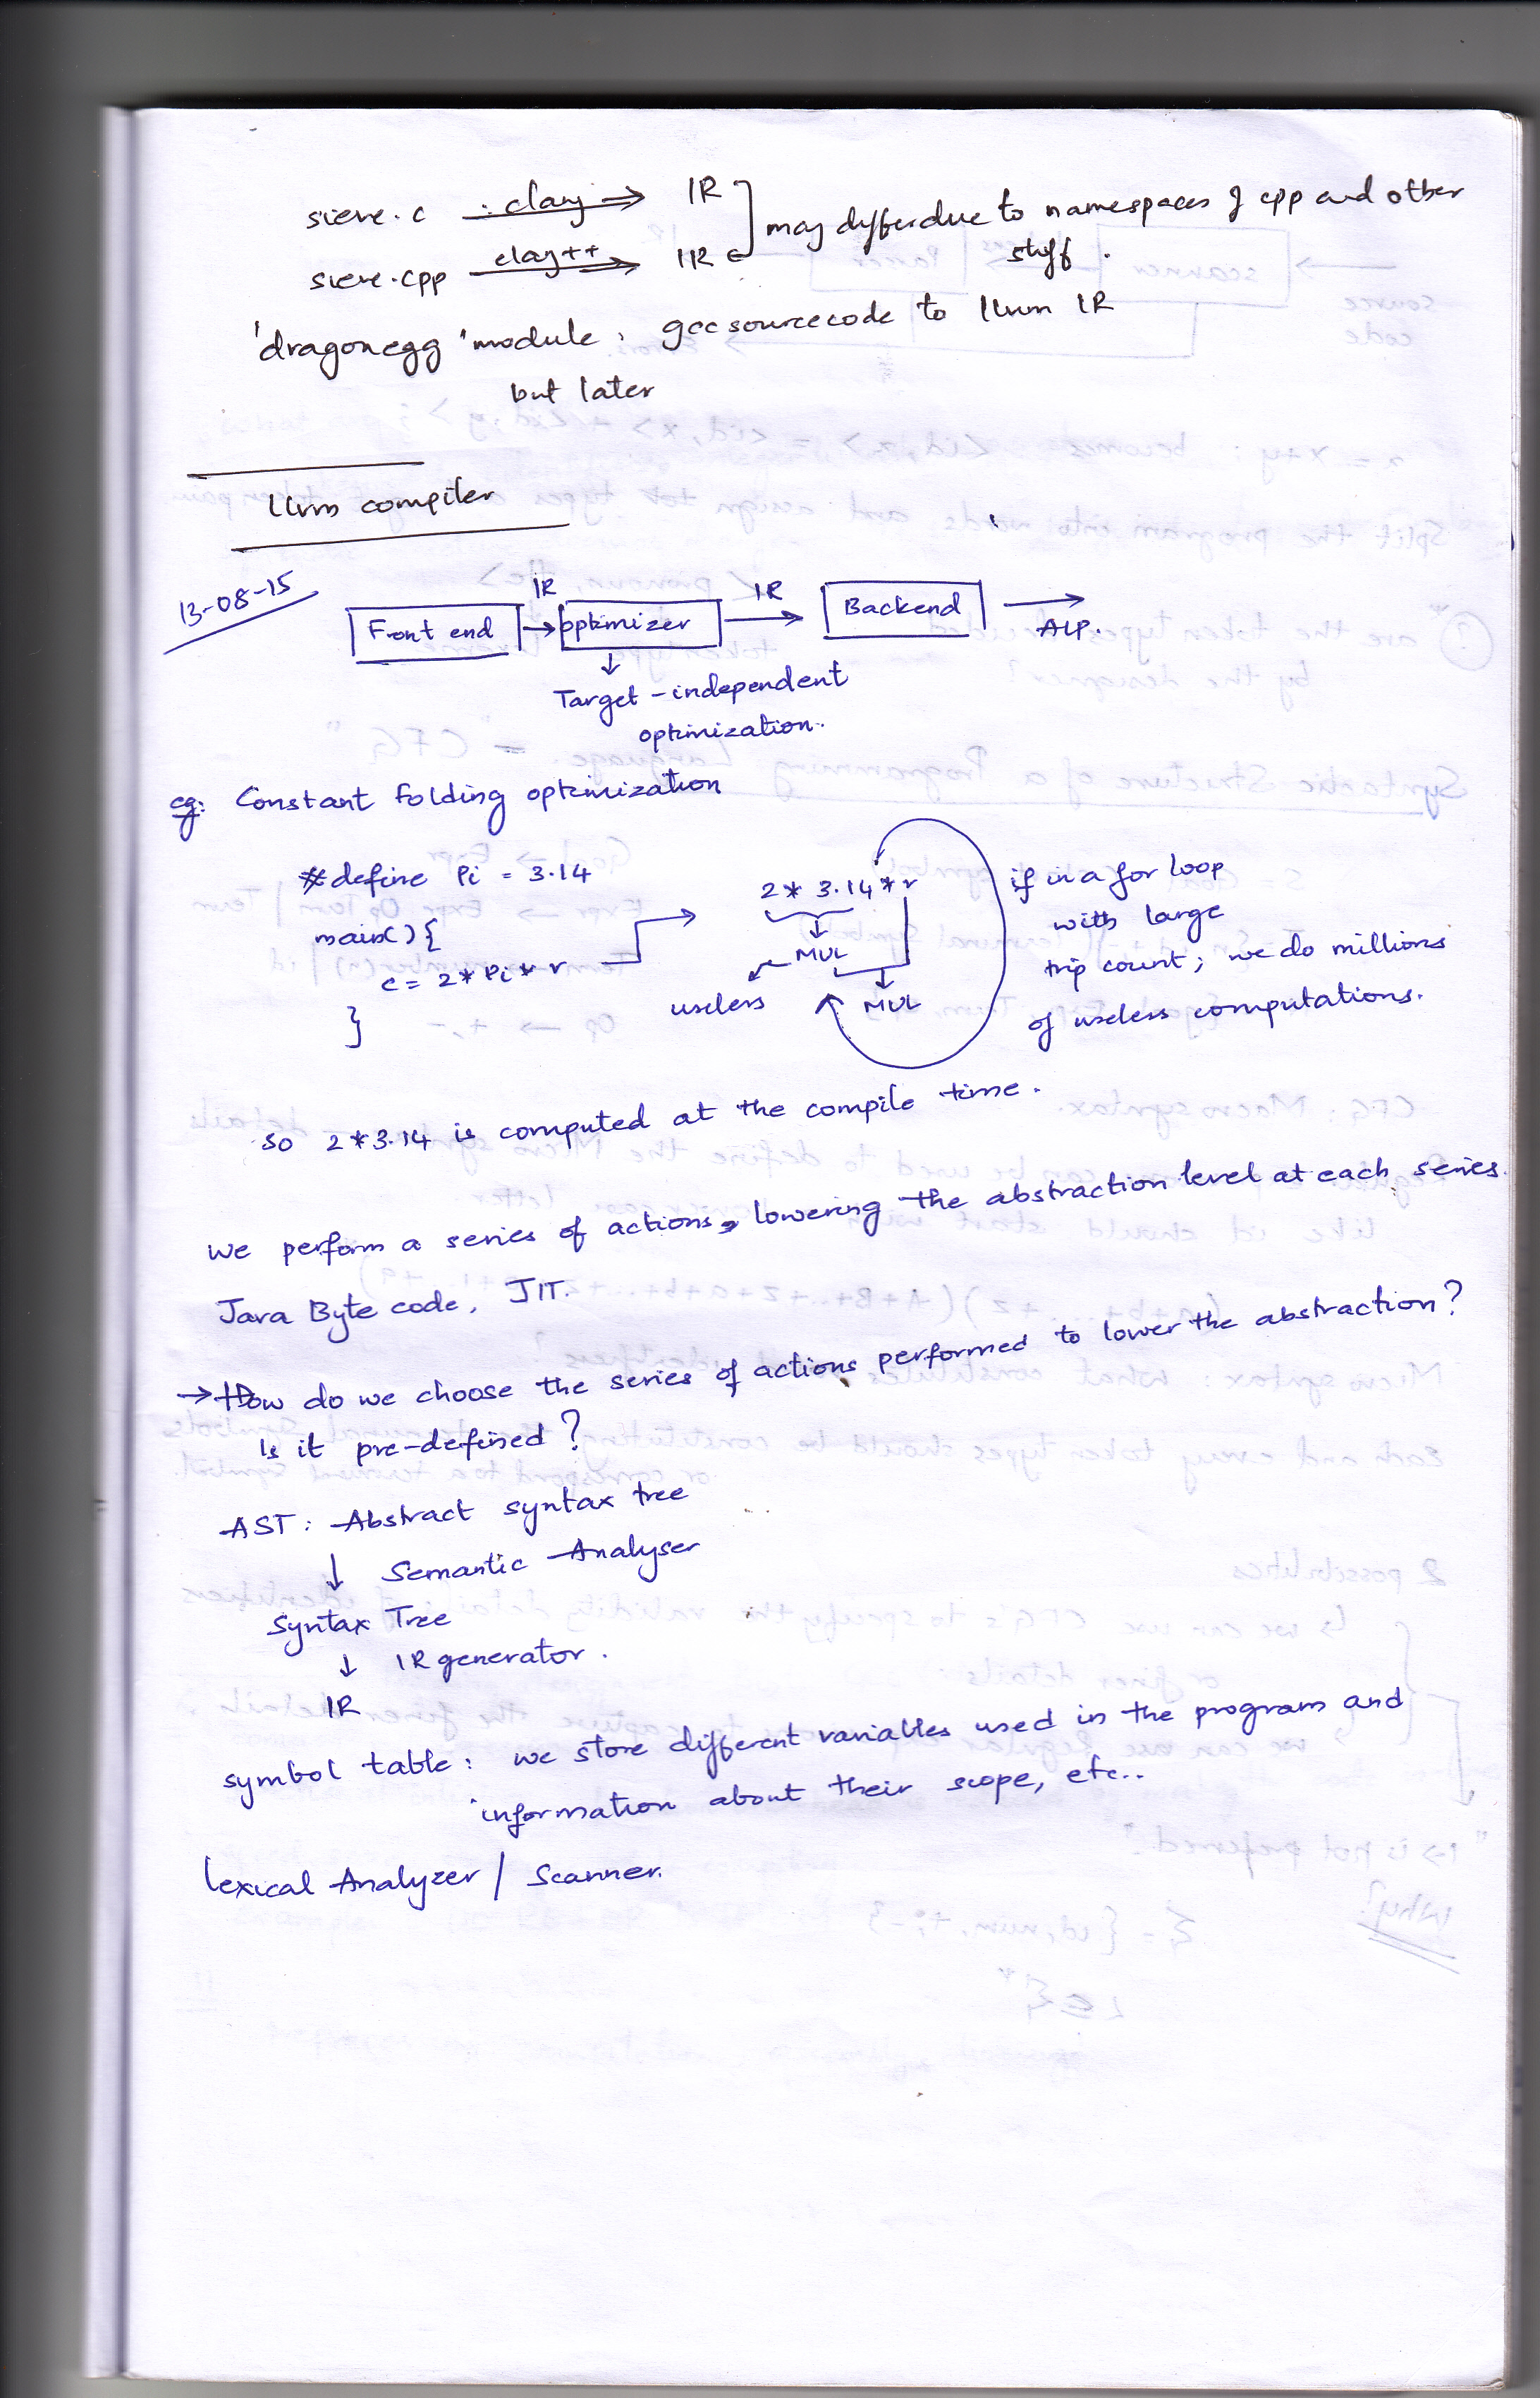 sieve.c clang IR
sieve.cpp clang++ IR
may differ due to namespaces of cpp and other
stuff.
'dragonegg' module, gcc sourcecode to llvm IR
but later
llvm compiler
13-08-15
Front end IR optimizer IR Backend ALP.
Target-independent
optimization.
eg: Constant folding optimization
#define Pi = 3.14
main(){
c = 2* Pi * r
}
2* 3.14 * r
MUL
useless
MUL
if in a for loop
with large
trip count; we do millions
of useless computations.
so 2*3.14 is computed at the compile time.
we perform a series of actions, lowering the abstraction level at each series.
Java Byte code, JIT.
→ How do we choose the series of actions performed to lower the abstraction?
Is it pre-defined?
AST: Abstract syntax tree
↓ Semantic Analyser
Syntax Tree
↓ IR generator.
IR
symbol table: we store different variables used in the program and
information about their scope, etc..
Lexical Analyzer / Scanner.